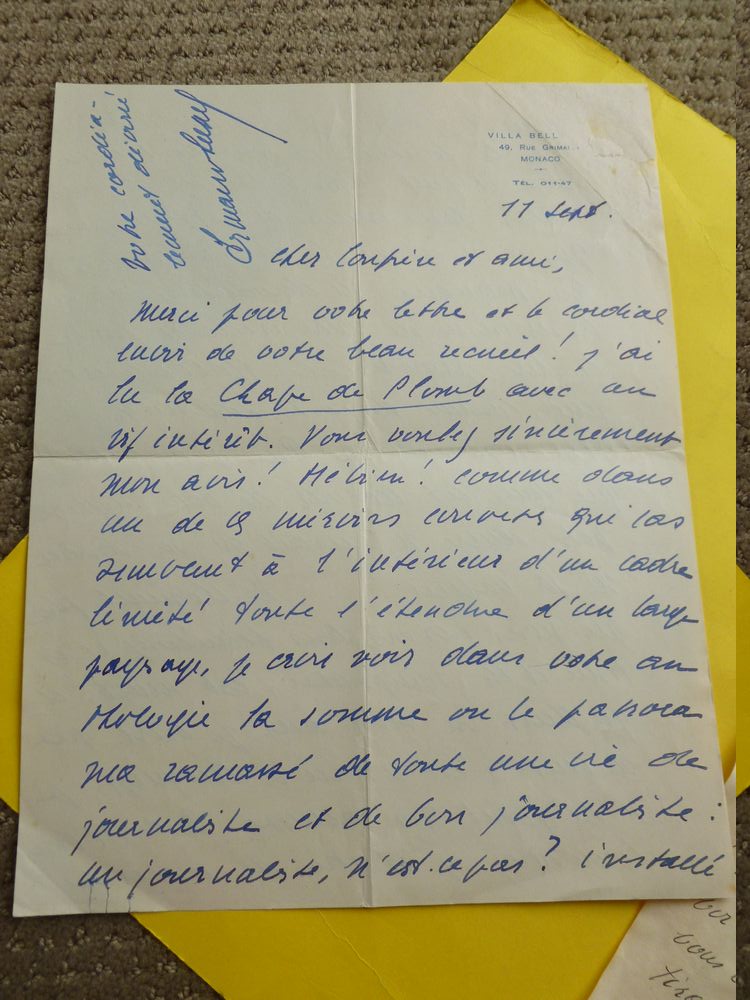 VILLA BELL
49, RUE GRIMAL
MONACO
TÉL. 011-47
11 Sept.
Cher Confrère et ami,
Merci pour votre lettre et le cordial
envoi de votre beau recueil ! J'ai
lu la Chape de Plomb avec un
vif intérêt. Vous voulez sincèrement
mon avis ! Hé bien ! comme dans
un de ces miroirs convexes qui ras
semblent à l'intérieur d'un cadre
limité toute l'étendue d'un large
paysage, je crois voir dans votre an
thologie la somme ou le panora
ma ramassé de toute une vie de
journaliste et de bon journaliste :
un journaliste, n'est-ce pas ? installé
Votre cordia-
lement dévoué
vous